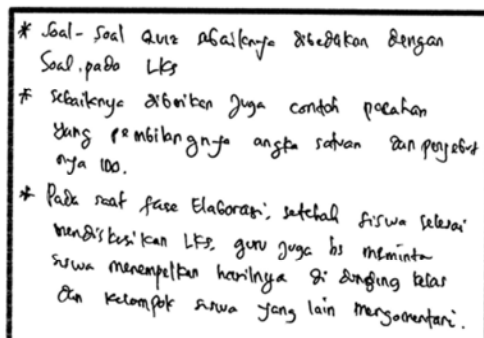 * Soal-Soal Quiz sebaiknya dibedakan dengan
Soal pada LKS
* sebaiknya diberikan juga contoh pecahan
yang pembilangnya angka satuan dan penyebut
nya 100.
* Pada saat fase Elaborasi, setelah siswa selesai
mendiskusikan LKS, guru juga bs meminta
siswa menempelkan hasilnya di dinding kelas
dan kelompok siswa yang lain mengomentari.